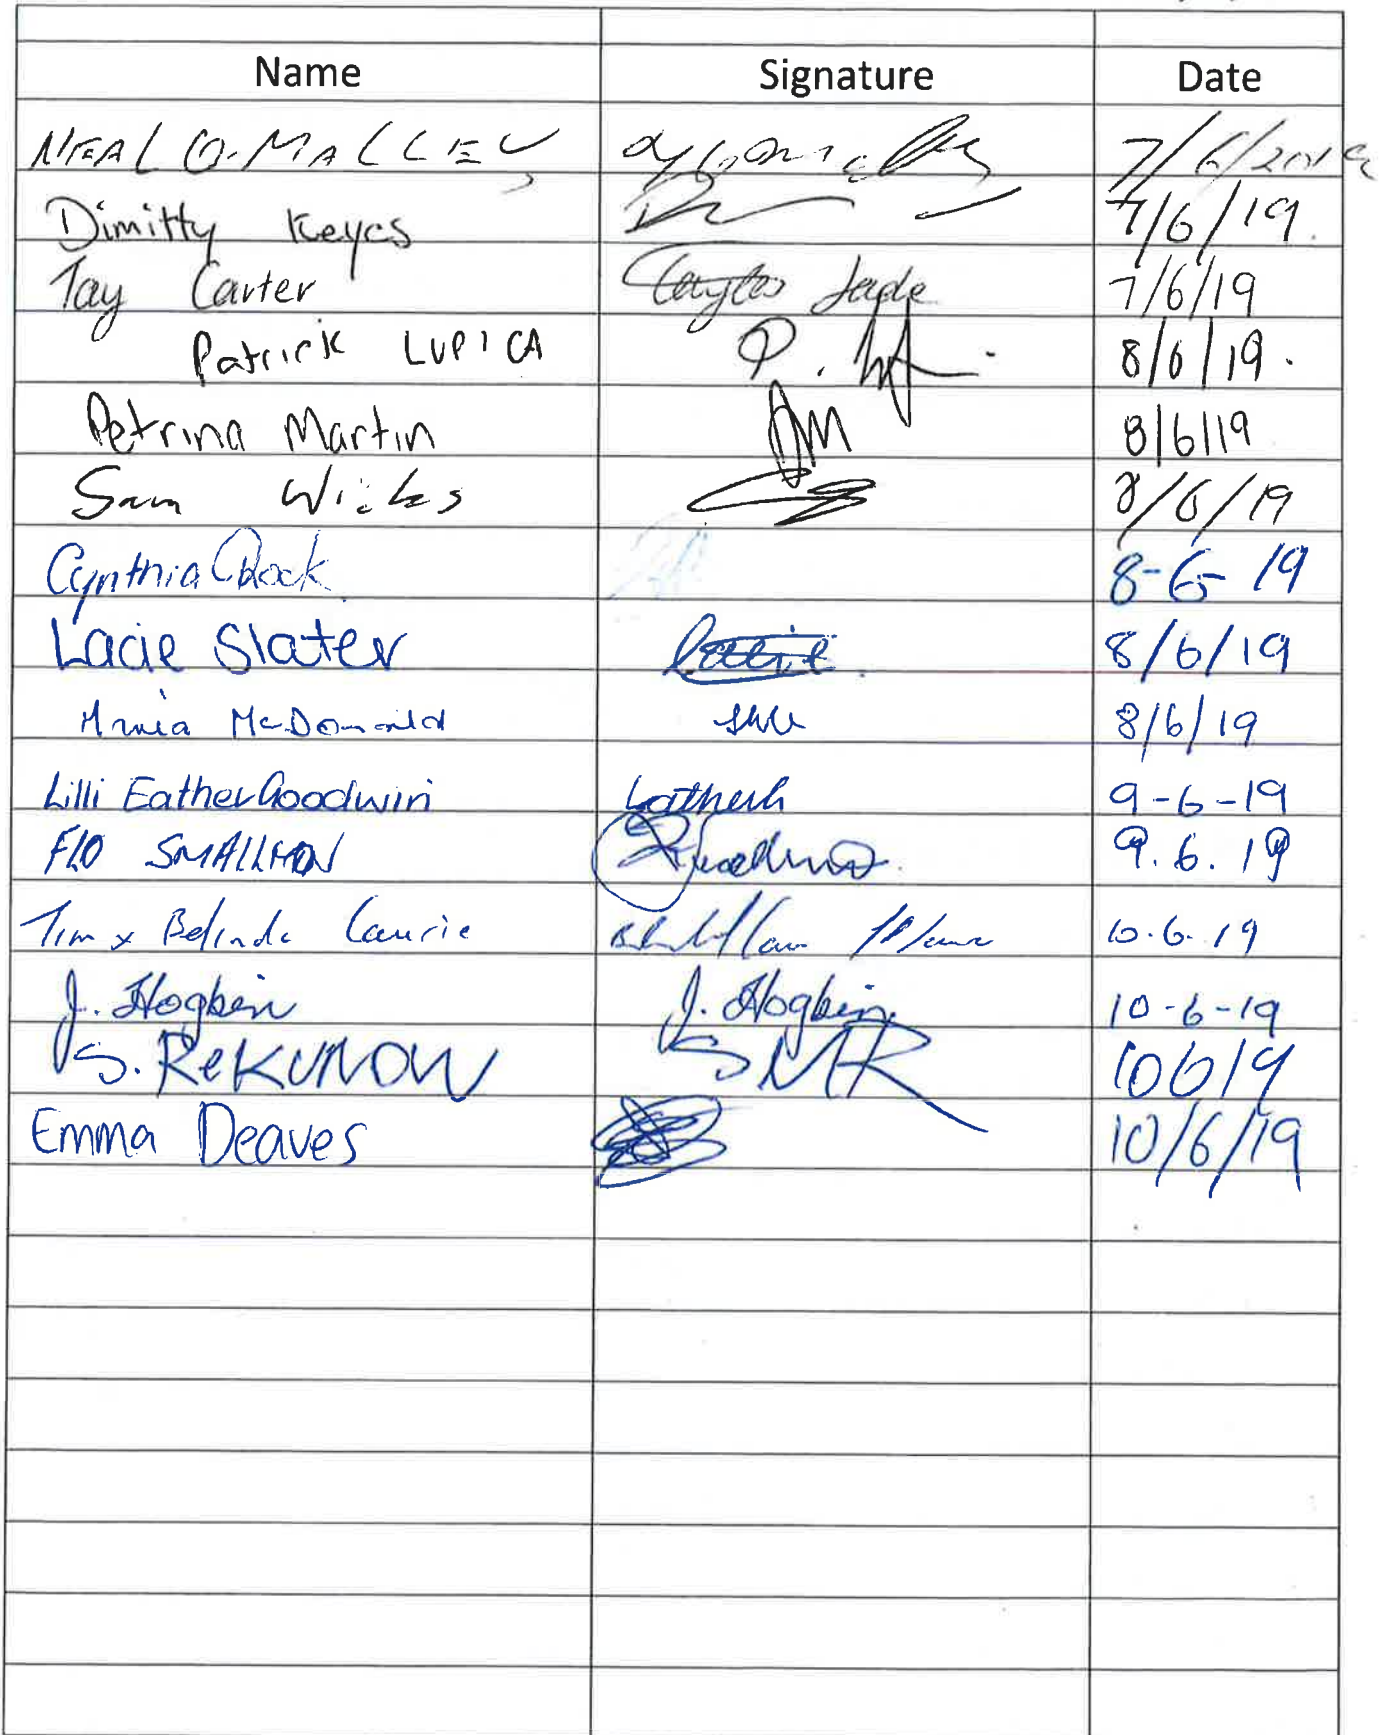 Name Signature Date
NEAL O'MALLEY 7/6/2019
Dimitty Keyes 7/6/19.
Tay Carter Taylor Jade 7/6/19
Patrick LUPICA P. 8/6/19.
Petrina Martin 8/6/19
Sam Wicks 8/6/19
Cynthia 8-6-19
Lacie Slater Lacie 8/6/19
McDonald 8/6/19
Lilli Eather Goodwin 9-6-19
FLO SMALLMON 9.6.19
Tim & Belinda Laurie 10.6.19
J. Hogbin J. Hogbin 10-6-19
S. ReKUNOW SMR 10 6 19
Emma Deaves 10/6/19